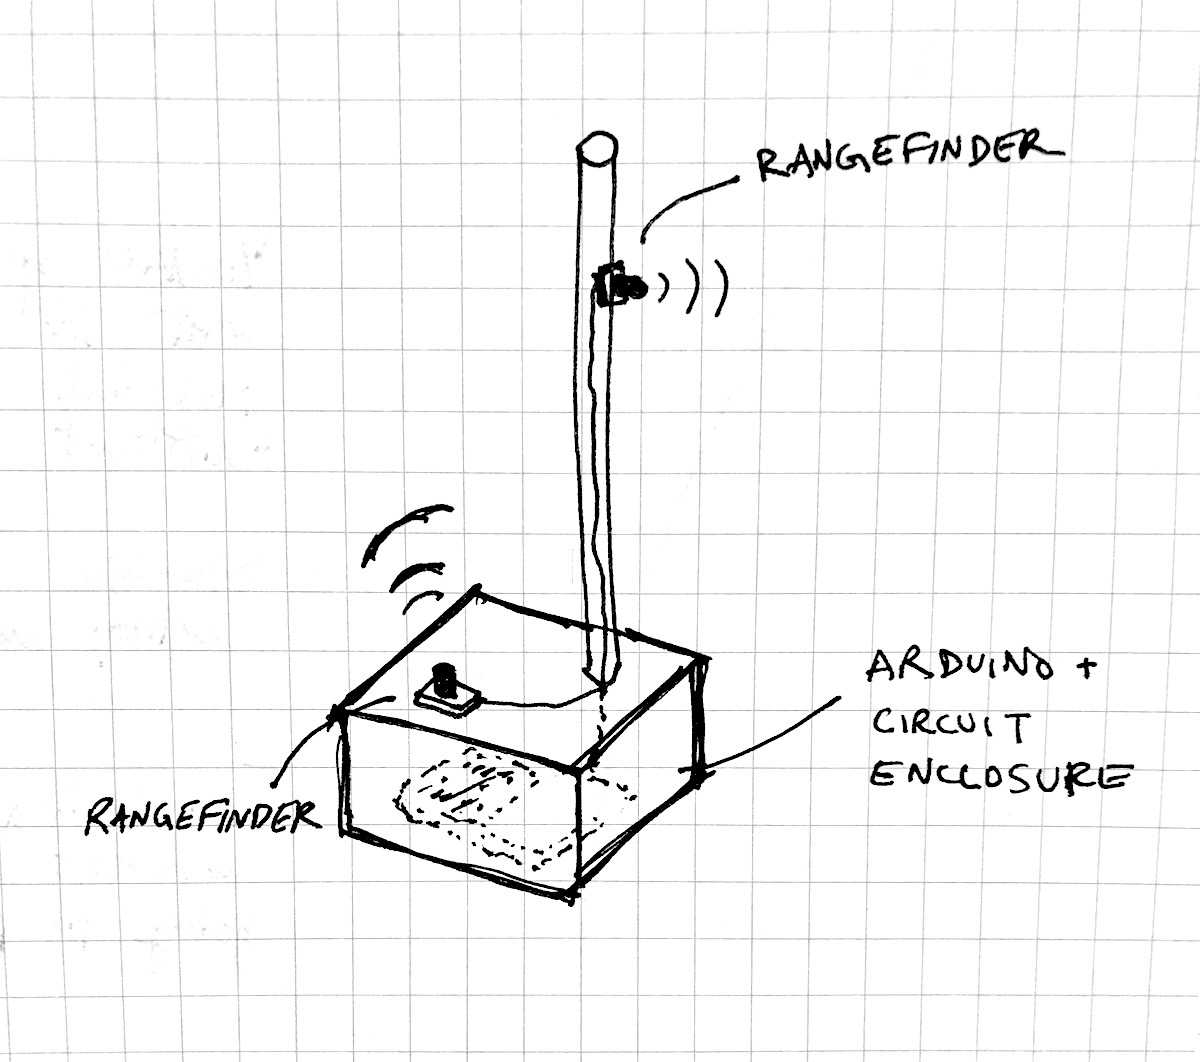 RANGEFINDER
ARDUINO +
CIRCUIT
ENCLOSURE
RANGEFINDER